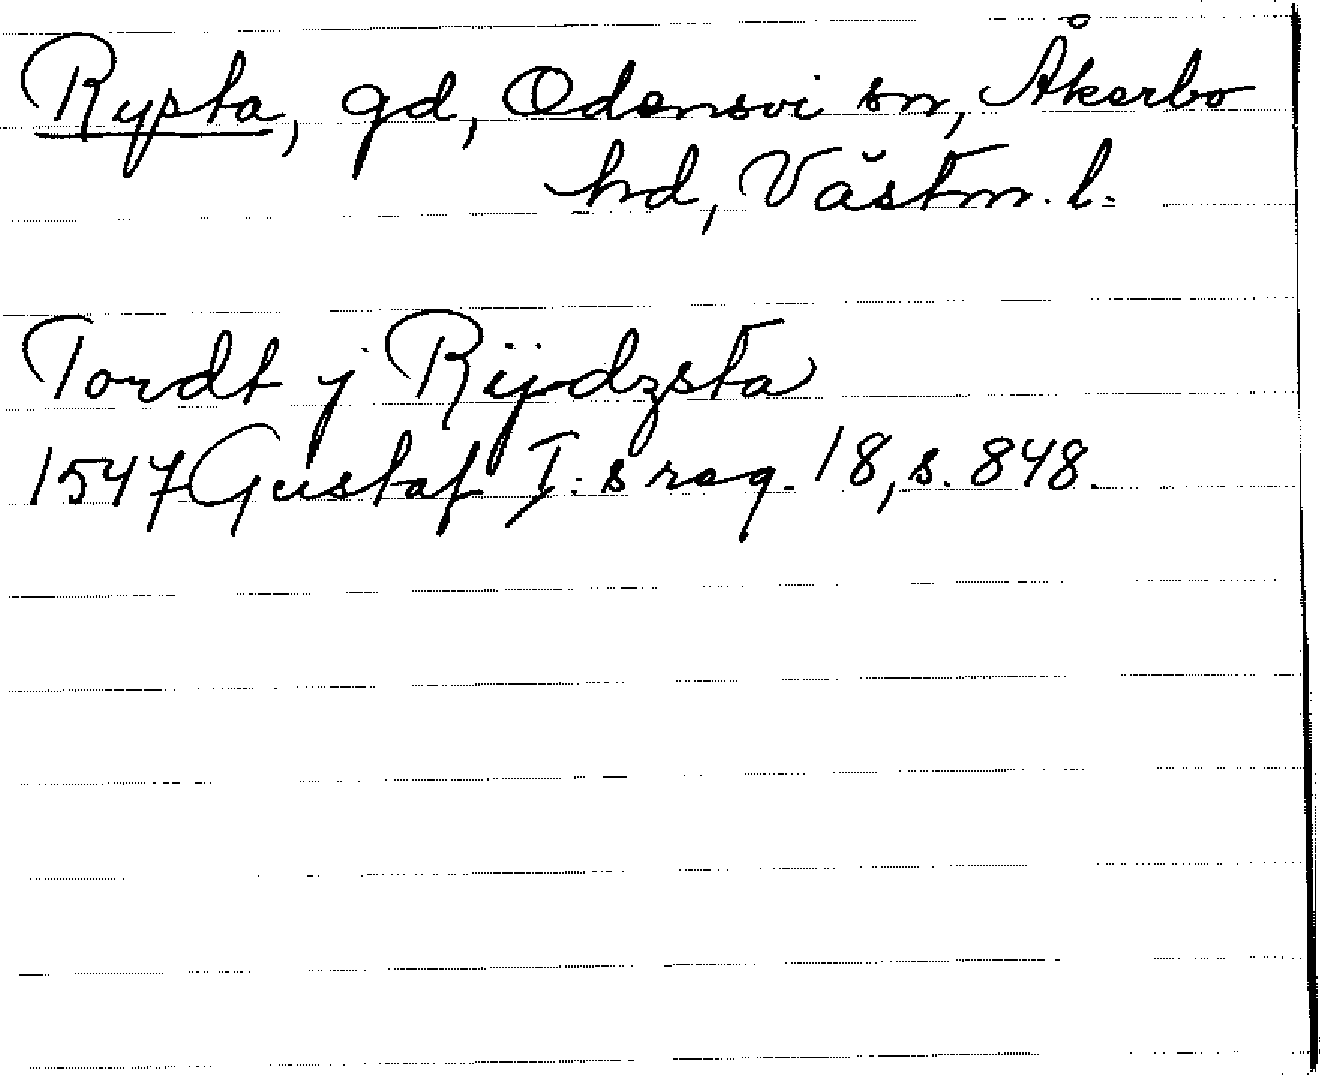 Rypsta, gd, Odensvi sn, Åkerbo
hd, Västm. l.
Tordt j Rÿdzsta
1547 Gustaf I:s reg. 18, s. 848.